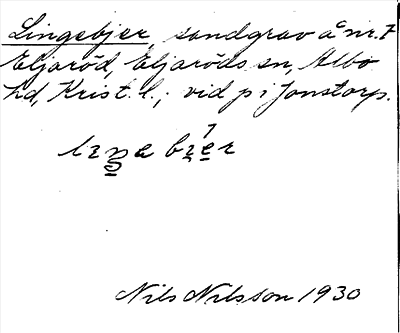 Lingebjer, sandgrav å nr. 7
Eljaröd, Eljaröds sn, Albo
hd, Krist. l.; vid p i Jonstorp.
Nils Nilsson 1930